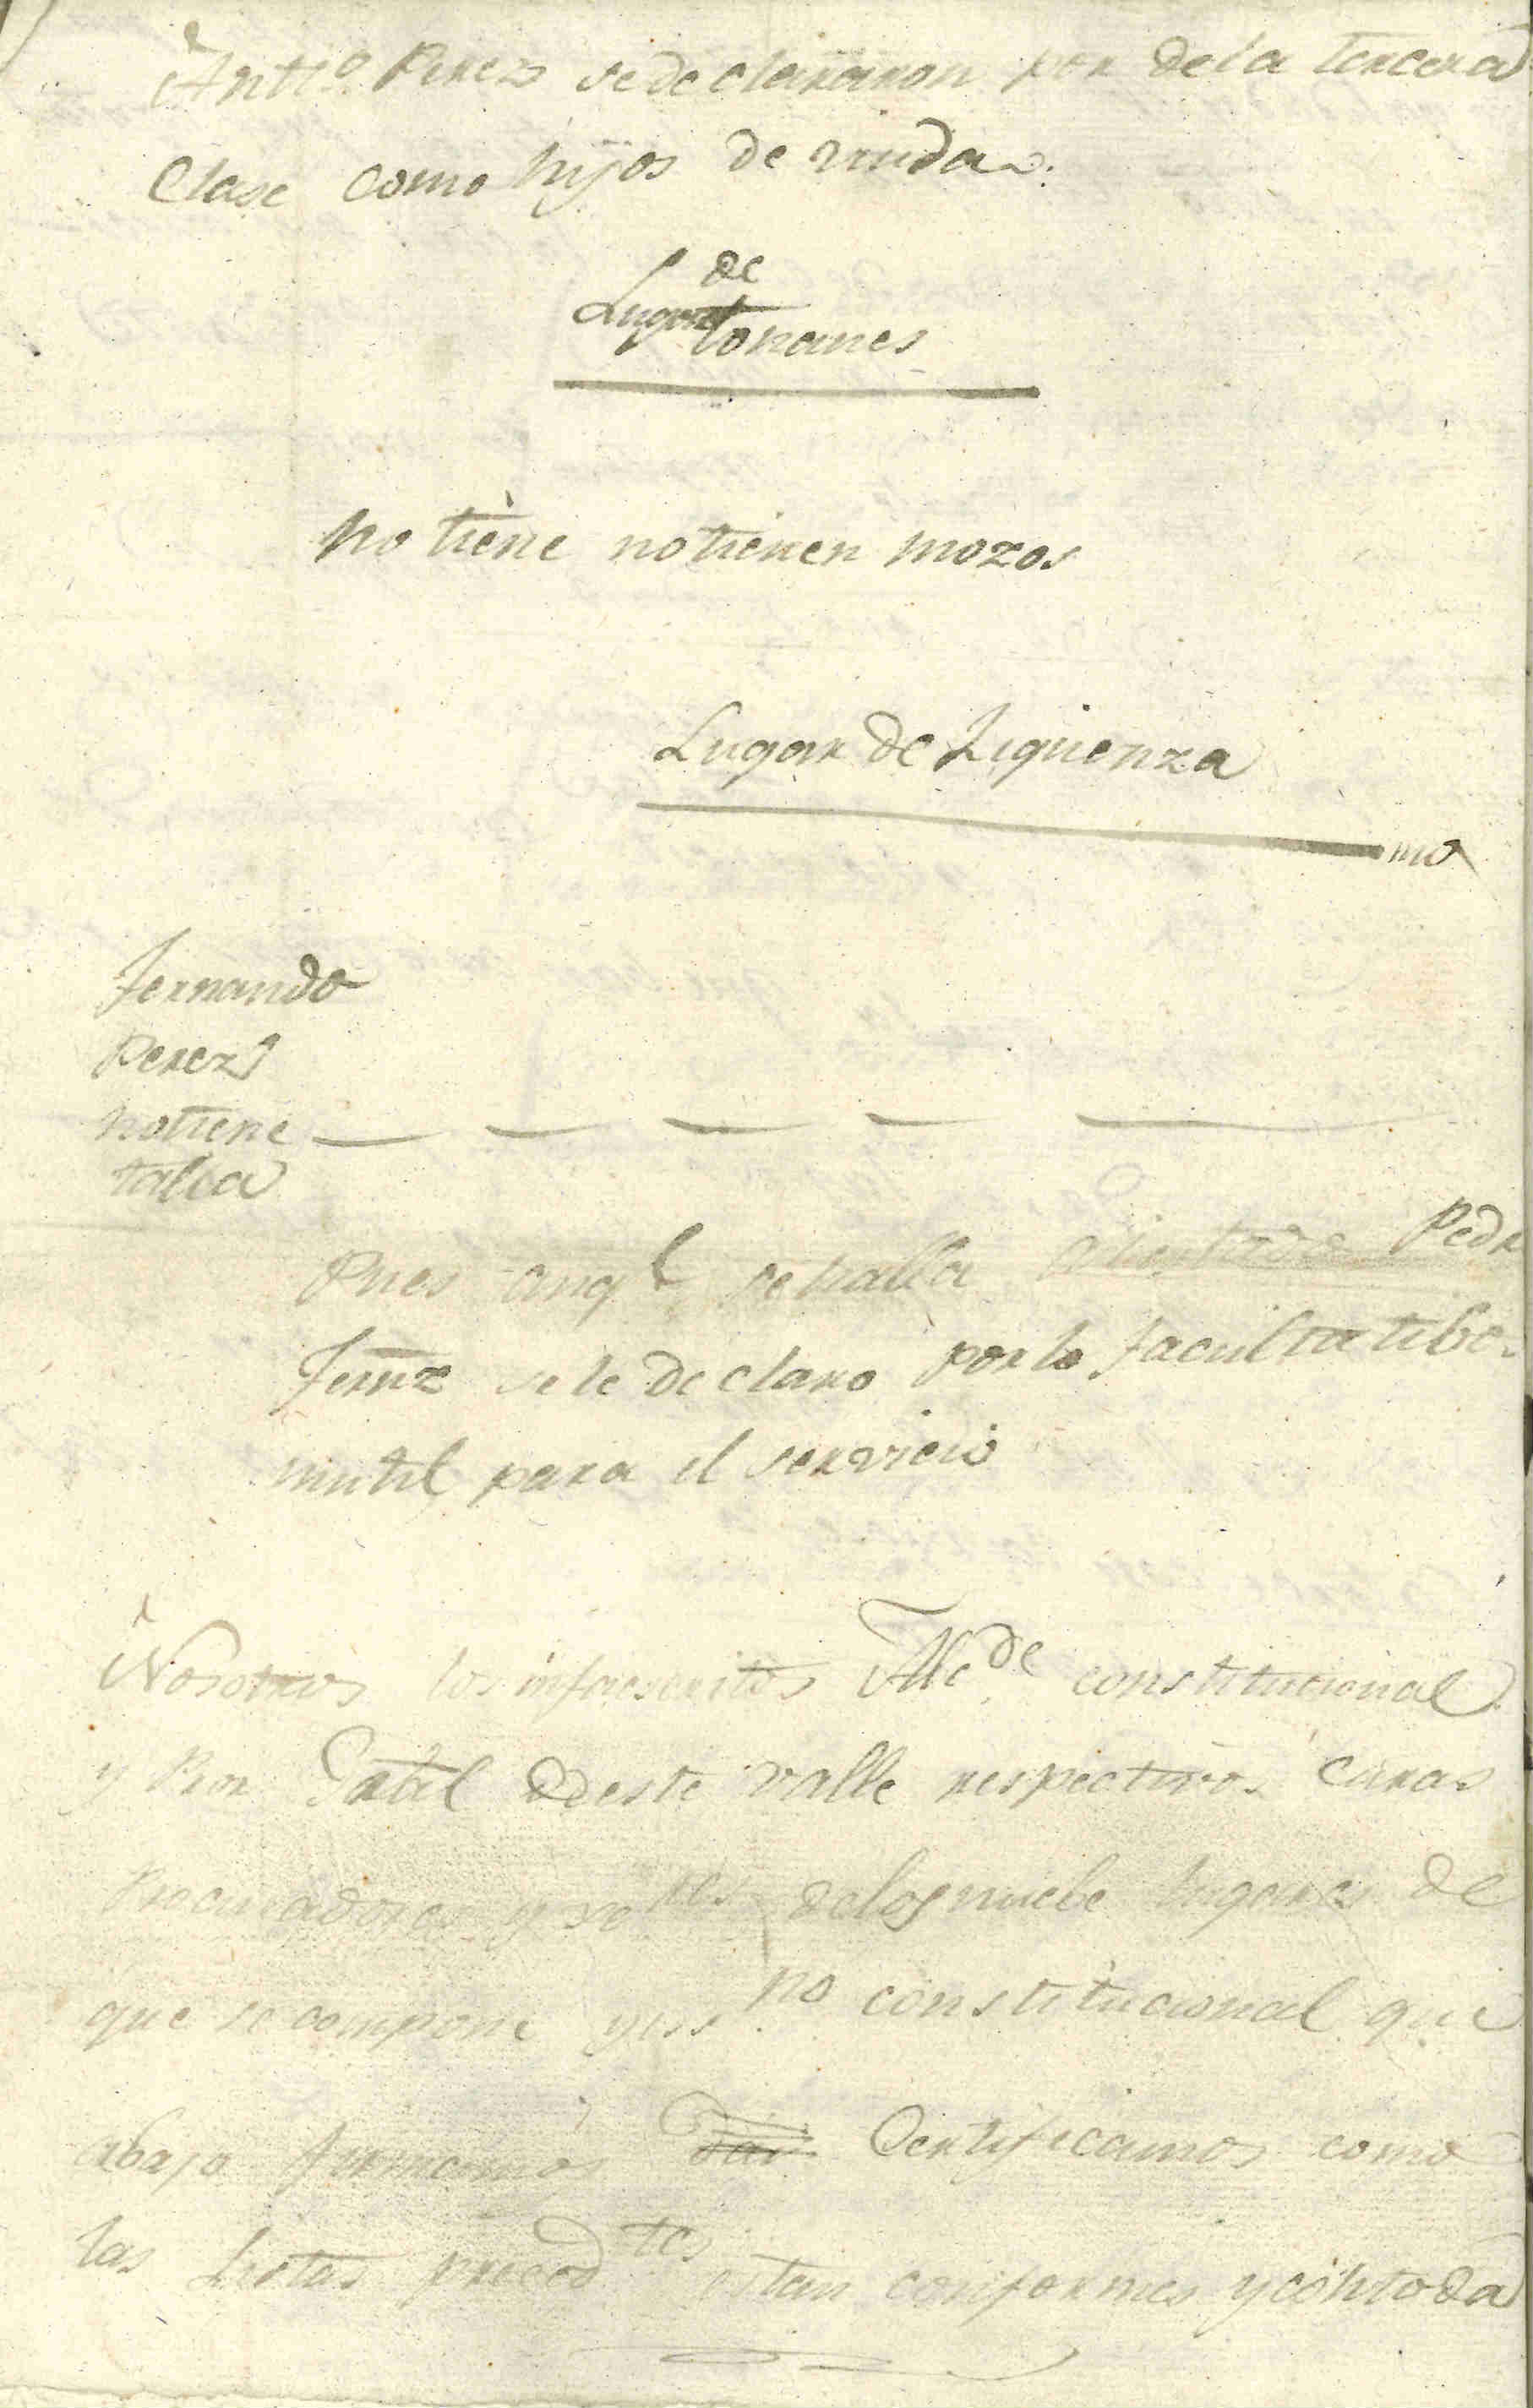 Antto Perez se declararon por de la tercera
Clase como hijos de viuda.
Lugar de
toranes
no tiene no tienen mozos
Lugar de Ziguenza
mo
Fernando
Perez
no tiene
talla
Pues se halla Pedr
Fernz se le declaro por lo facultatibo
inutil para el servicio
Nosotros los infraescritos Alcde constitucional
y Pror Gral de este valle respectivos curas
Procuradores y de los nuebe lugares de
que se compone y no constitucional que
abajo firmamos Certificamos como
las listas precedtes estan conformes y con toda